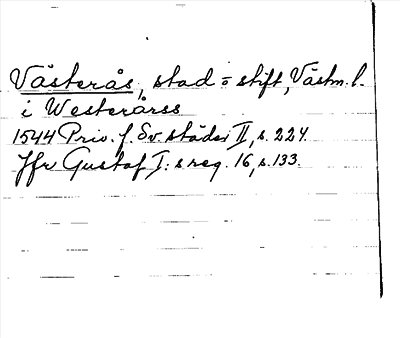 Västerås, stad o stift, Västm. l.
i Westerårss
1544 Priv. f. Sv. städer II, s. 224.
Jfr Gustaf I:s reg. 16, s. 133.